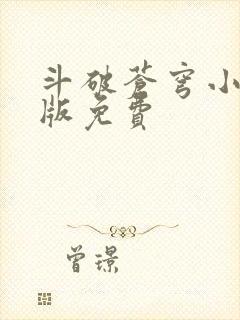 斗破苍穹小
版免費
曾璟